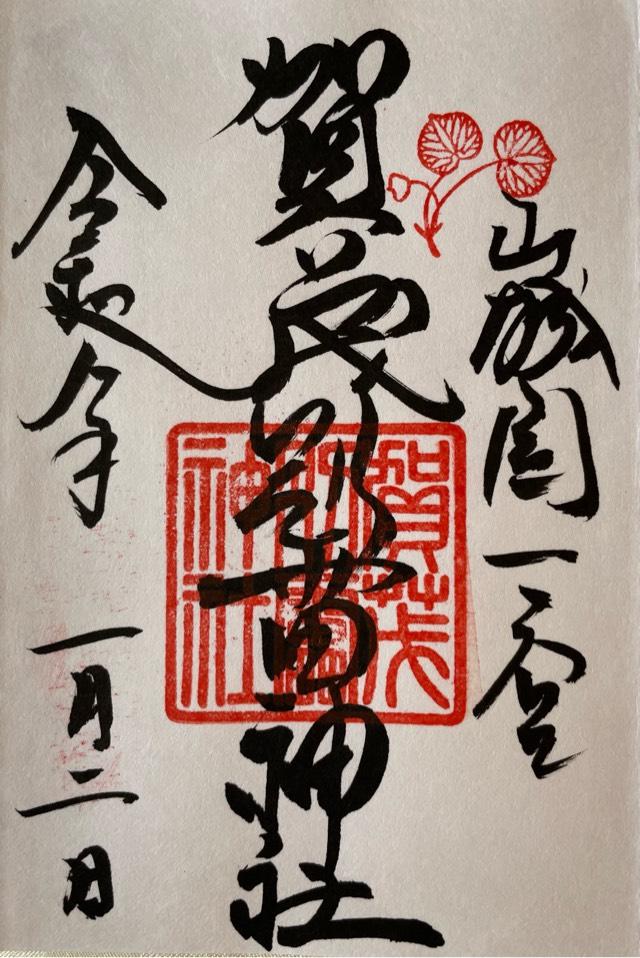 山城国一之宮
賀茂別雷神社
令和年一月二日
賀茂
別雷
神社